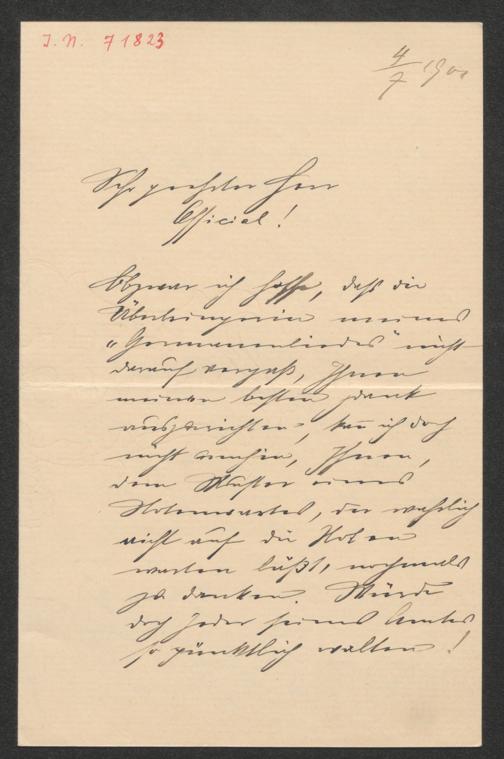 I. N. 71823
4/7 1900
Sehr geehrter Herr
Official!
Obzwar ich hoffe, daß die
Überbringerin meines
„Germanenliedes“ nicht
darauf vergaß, Ihnen
meinen besten Dank
auszurichten, kann ich doch
nicht umhin, Ihnen,
dem Muster eines
Notenwartes, der wahrlich
nicht auf die Noten
warten läßt, nochmals
zu danken. Würde
doch jeder seines Amtes
so pünktlich walten!